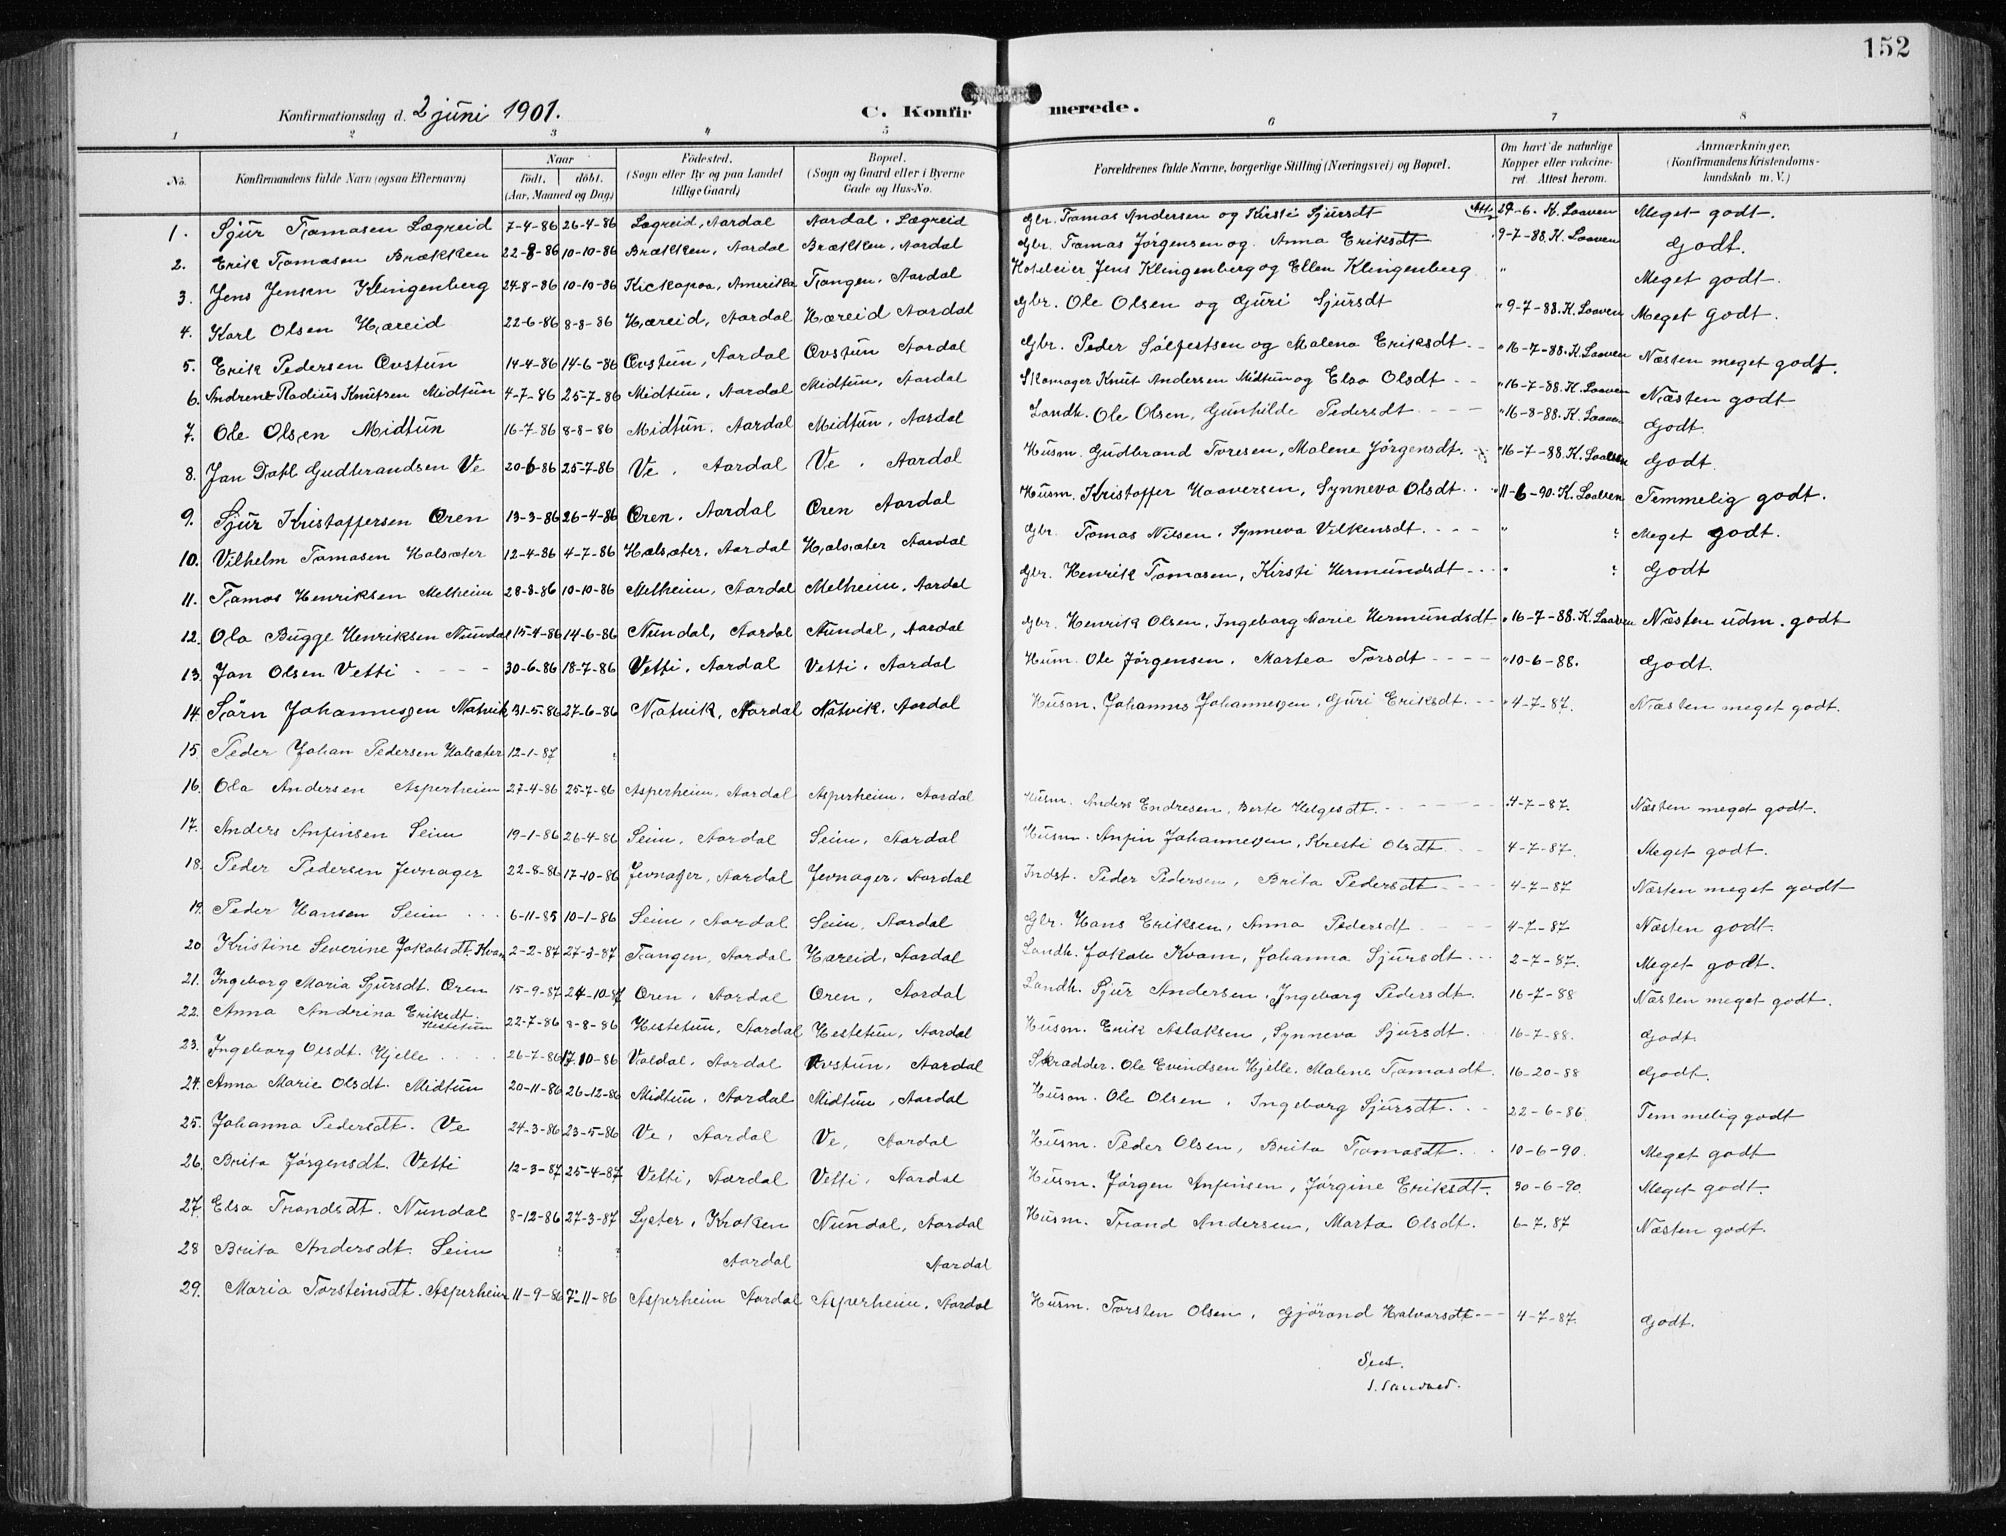 152
Konfirmationsdag d. 2 juni 1901. C. Konfirmerede.
1 2 3 4 5 6 7 8
No. Konfirmandens fulde Navn (ogsaa Efternavn) Naar Födt. döbt. (Aar, Maaned og Dag) Födested. (Sogn eller By og paa Landet tillige Gaard) Bopæl. (Sogn og Gaard eller i Byerne Gade og Hus-No. Forældrenes fulde Navne, borgerlige Stilling (Næringsvei) og Bopæl. Om havt de naturlige Kopper eller vakcineret. Attest herom. Anmærkninger. (Konfirmandens Kristendomskundskab m. V.)
1. Sjur Tomasen Lægreid 7-4-86 26-4-86 Lægreid, Aardal Aardal. Lægreid Gbr. Tomas Andersen og Kirsti Sjursdt Att. 29-6. K. Laaven Meget godt.
2. Erik Tomasen Brækken 22-8-86 10-10-86 Brækken, Aardal Brækken, Aardal Gbr. Tomas Jørgensen og Anna Eriksdt " 9-7-88. K. Laaven Godt.
3. Jens Jensen Klingenberg 24-8-86 10-10-86 Kickapoa, Amerika Tangen, Aardal Hoteleier Jens Klingenberg og Ellen Klingenberg " Meget godt.
4. Karl Olsen Hæreid 22-6-86 8-8-86 Hæreid, Aardal Hæreid Aardal Gbr. Ole Olsen og Guri Sjursdt " 9-7-88. K. Laaven Meget godt.
5. Erik Pedersen Øvstun 14-4-86 14-6-86 Øvstun, Aardal Øvstun Aardal Gbr. Peder Sølfestsen og Malena Eriksdt " 16-7-88. K. Laaven Næsten meget godt.
6. Radius Knutsen Midtun 4-7-86 25-7-86 Midtun, Aardal Midtun, Aardal Skomager Knut Andersen Midtun og Elsa Olsdt " 16-7-88. K. Laaven Næsten godt
7. Ole Olsen Midtun 16-7-86 8-8-86 Midtun, Aardal Midtun, Aardal Landh. Ole Olsen, Gunhilde Pedersdt " 16-8-88. K. Laaven Godt.
8. Jan Dahl Gudbrandsen Ve 20-6-86 25-7-86 Ve, Aardal Ve, Aardal Husm. Gudbrand Toresen, Malene Jørgensdt. " 16-7-88. K. Laaven Godt.
9. Sjur Kristoffersen Øren 13-3-86 26-4-86 Øren, Aardal Øren Aardal Husm. Kristoffer Haaversen, Synneva Olsdt. " 11-6-90. K. Laaven Temmelig godt.
10. Vilhelm Tomasen Halsæter 12-4-86 4-7-86 Halsæter, Aardal Halsæter Aardal Gbr. Tomas Nilsen, Synneva Vilkensdt. " ? Meget godt.
11. Tomas Henriksen Melheim 28-8-86 10-10-86 Melheim, Aardal Melheim, Aardal Gbr. Henrik Tomasen, Kirsti Hermundsdt " ? Godt
12. Ola Bugge Henriksen Nundal 15-4-86 14-6-86 Nundal, Aardal Nundal, Aardal Gbr. Henrik Olsen, Ingeborg Marie Hermundsdt " 16-7-88. K. Laaven Næsten udm. godt
13. Jan Olsen Vetti 30-6-86 18-7-86 Vetti, Aardal Vetti, Aardal Husm. Ole Jørgensen, Martea Torsdt " 10-6-88. Godt.
14. Sørn Johannesen Natvik 31-5-86 27-6-86 Natvik, Aardal Natvik, Aardal Husm. Johannes Johannesen, Guri Eriksdt. " 4-7-87. Næsten meget godt.
15. Peder Johan Pedersen Halsæter 12-1-87 ?
16. Ola Andersen Asperheim 27-4-86 25-7-86 Asperheim, Aardal Asperheim, Aardal Husm. Anders Endresen, Berte Helgesdt. 4-7-87. Næsten meget godt.
17. Anders Anfinsen Seim 19-1-86 26-4-86 Seim, Aardal Seim, Aardal Husm. Anfin Johannesen, Kresti Olsdt 4-7-87. Meget godt.
18. Peder Pedersen Jevnager 22-8-86 17-10-86 Jevnager, Aardal Jevnager, Aardal Indst. Peder Pedersen, Brita Pedersdt 4-7-87 Næsten meget godt
19. Peder Hansen Seim 6-11-85 10-1-86 Seim, Aardal Seim, Aardal Gbr. Hans Eriksen, Anna Pedersdt 4-7-87 Næsten godt.
20 Kristine Severine Jakobsdt. Kvam 2-2-87 27-3-87 Tangen, Aardal Hæreid, Aardal Landh. Jakob Kvam, Johanna Sjursdt 2-7-87. Meget godt.
21. Ingeborg Maria Sjursdt. Øren 15-9-87 24-10-87 Øren, Aardal Øren, Aardal Landh. Sjur Andersen, Ingeborg Pedersdt. 16-7-88 Næsten meget godt.
22. Anna Andrina Eriksdt. Hestetun 22-7-86 8-8-86 Hestetun, Aardal Hestetun, Aardal Husm. Erik Aslaksen, Synneva Sjursdt. 16-7-88. Godt.
23. Ingeborg Olsdt. Hjelle 26-7-86 17-10-86 Voldal, Aardal Øvstun, Aardal Skradder. Ole Evindsen Hjelle, Malene Tomasdt. 16-20-88 Godt.
24. Anna Marie Olsdt. Midtun 20-11-86 26-12-86 Midtun, Aardal Midtun, Aardal Husm. Ole Olsen, Ingeborg Sjursdt. 22-6-86. Temmelig godt
25. Johanna Pedersdt. Ve 24-3-86 23-5-86 Ve, Aardal Ve, Aardal Husm. Peder Olsen, Brita Tomasdt. 10-6-90. Meget godt
26. Brita Jørgensdt. Vetti 12-3-87 25-4-87 Vetti, Aardal Vetti, Aardal Husm. Jørgen Anfinsen, Jørgine Eriksdt. 30-6-90. Meget godt.
27. Elsa Trondsdt. Nundal 8-12-86 27-3-87 Lyster, Kroken Nundal, Aardal Husm. Trond Andersen, Marta Olsdt. 6-7-87 Næsten godt.
28 Brita Andersdt. Seim ? ? Aardal Aardal
29. Maria Torsteinsdt. Asperheim 11-9-86 7-11-86 Asperheim Aardal Asperheim, Aardal Husm. Torsten Olsen, Gjørand Halvorsdt 4-7-87. Godt.